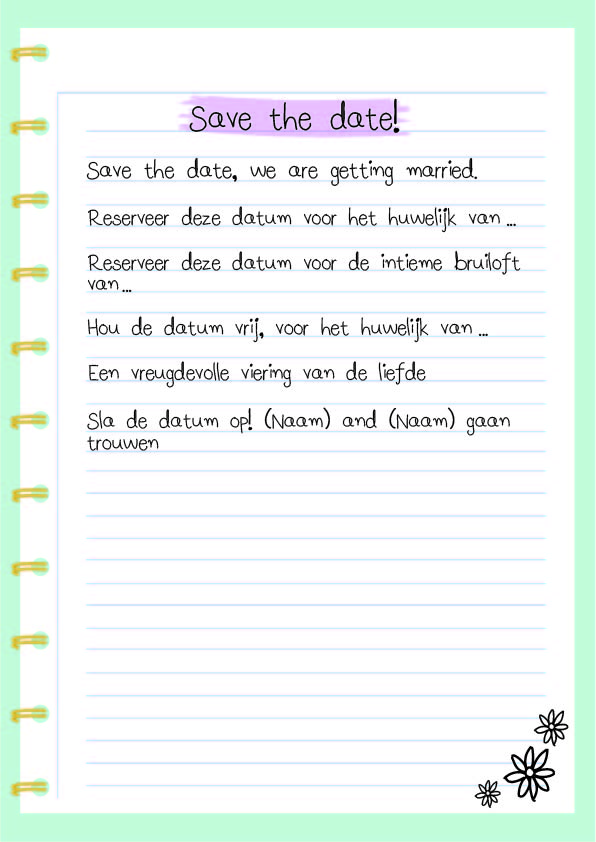 Save the date!
Save the date, we are getting married.
Reserveer deze datum voor het huwelijk van ...
Reserveer deze datum voor de intieme bruiloft
van ...
Hou de datum vrij, voor het huwelijk van ...
Een vreugdevolle viering van de liefde
Sla de datum op! (Naam) and (Naam) gaan
trouwen